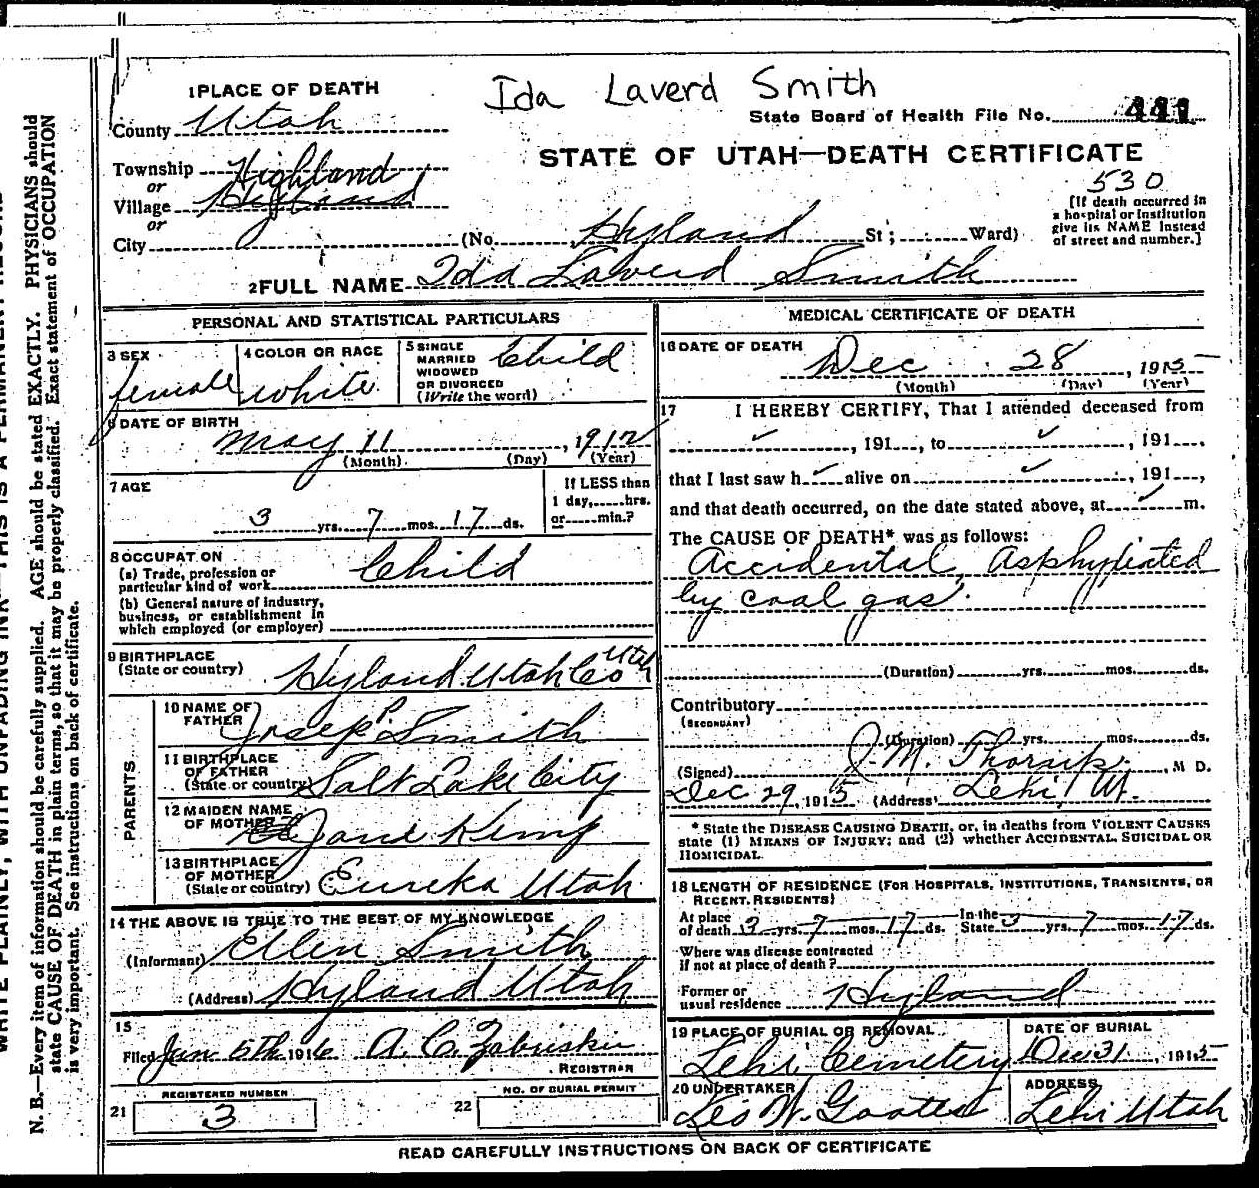 Ida Laverd Smith
1 PLACE OF DEATH
County Utah
State Board of Health File No. 441
STATE OF UTAH—DEATH CERTIFICATE
530
Township Highland
or
Village Hyland
or
City (No. Hyland St; Ward)
[If death occurred in
a hospital or Institution
give its NAME instead
of street and number.]
2 FULL NAME Ida Laverd Smith
PERSONAL AND STATISTICAL PARTICULARS
3 SEX
female
4 COLOR OR RACE
white
5 SINGLE
MARRIED
WIDOWED
OR DIVORCED
(Write the word)
Child
6 DATE OF BIRTH
May 11, 1912
(Month) (Day) (Year)
7 AGE
3 yrs. 7 mos. 17 ds.
If LESS than
1 day, hrs.
or min.?
8 OCCUPATION
(a) Trade, profession or
particular kind of work Child
(b) General nature of industry,
business, or establishment in
which employed (or employer)
9 BIRTHPLACE
(State or country) Hyland Utah Co Utah
PARENTS
10 NAME OF
FATHER Josep P. Smith
11 BIRTHPLACE
OF FATHER
(State or country) Salt Lake City
12 MAIDEN NAME
OF MOTHER Jane Kemp
13 BIRTHPLACE
OF MOTHER
(State or country) Eureka Utah
14 THE ABOVE IS TRUE TO THE BEST OF MY KNOWLEDGE
(Informant) Ellen Smith
(Address) Hyland Utah
15
Filed Jan 5th 1916 A. C. Zabriskie
REGISTRAR
21 REGISTERED NUMBER
3
22 NO. OF BURIAL PERMIT
MEDICAL CERTIFICATE OF DEATH
16 DATE OF DEATH
Dec 28, 1915
(Month) (Day) (Year)
17 I HEREBY CERTIFY, That I attended deceased from
✓, 191, to ✓, 191,
that I last saw h ✓ alive on ✓, 191,
and that death occurred, on the date stated above, at ✓ m.
The CAUSE OF DEATH* was as follows:
Accidental Asphyxiated
by coal gas.
(Duration) yrs. mos. ds.
Contributory
(SECONDARY)
(Duration) yrs. mos. ds.
(Signed) J. M. M D.
Dec 29, 1915 (Address) Lehi, Ut.
* State the DISEASE CAUSING DEATH, or, in deaths from VIOLENT CAUSES
state (1) MEANS OF INJURY; and (2) whether ACCIDENTAL, SUICIDAL OR
HOMICIDAL.
18 LENGTH OF RESIDENCE (FOR HOSPITALS, INSTITUTIONS, TRANSIENTS, OR
RECENT RESIDENTS)
At place
of death 3 yrs. 7 mos. 17 ds. In the
State 3 yrs. 7 mos. 17 ds.
Where was disease contracted
if not at place of death?
Former or
usual residence Hyland
19 PLACE OF BURIAL OR REMOVAL
Lehi Cemetery
DATE OF BURIAL
Dec 31, 1915
20 UNDERTAKER
W.
ADDRESS
Lehi Utah
READ CAREFULLY INSTRUCTIONS ON BACK OF CERTIFICATE
WRITE PLAINLY, WITH UNFADING INK—THIS IS A PERMANENT RECORD
N. B.—Every item of information should be carefully supplied. AGE should be stated EXACTLY. PHYSICIANS should
state CAUSE OF DEATH in plain terms, so that it may be properly classified. Exact statement of OCCUPATION
is very important. See instructions on back of certificate.